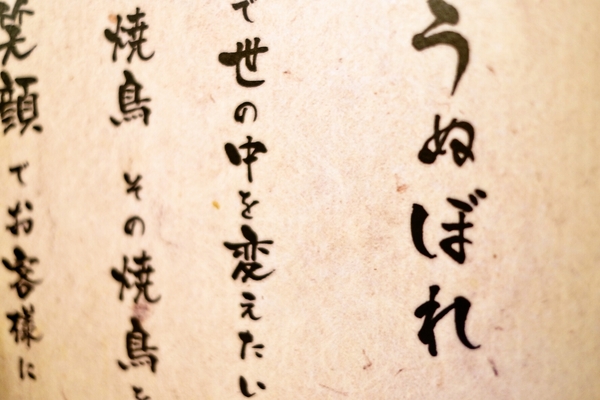 うぬぼれ
で世の中を変えたい
焼鳥 その焼鳥を
笑顔でお客様に